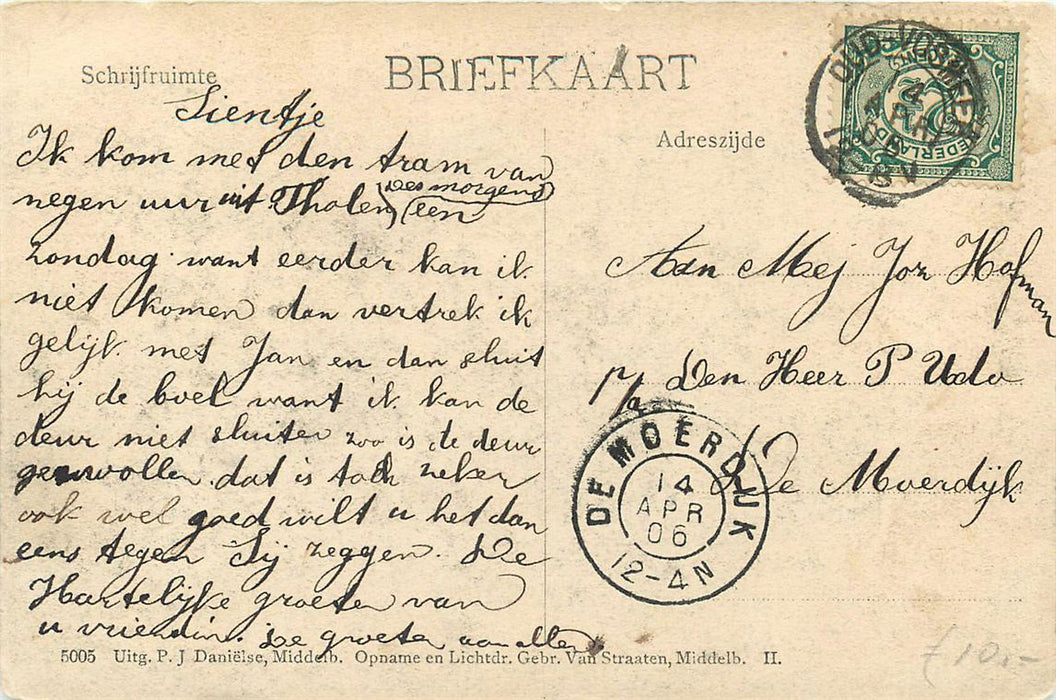 Schrijfruimte
BRIEFKAART
Adreszijde
Sientje
Ik kom met den tram van
negen uur uit Tholen (des morgens)
een
zondag want eerder kan ik
niet komen dan vertrek ik
gelijk met Jan en dan sluit
hij de boel want ik kan de
deur niet sluiten zoo is de deur
gezwollen. dat is toch zeker
ook wel goed wilt u het dan
eens tegen Sij zeggen. De
Hartelijke groeten van
u vriendin. De groeten aan allen
OUD-VOSMEER
14
APR
06
8 V
NEDERLAND
2½
Aan Mej Joh Hofman
p/a Den Heer P Udo
De Moerdijk
DE MOERDIJK
14
APR
06
12-4N
5005 Uitg. P. J Daniëlse, Middelb. Opname en Lichtdr. Gebr. Van Straaten, Middelb. II.
f 10.-